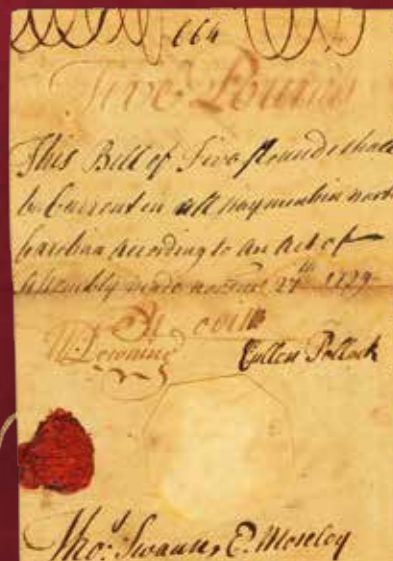 664
Five Pounds
This Bill of Five pounds shall
be Current in all paymentsin north
Carolina According to An Act of
Assembly made novem.r 27th 1729
W Downing Cullen Pollock
Tho.s Swann, E. Moseley